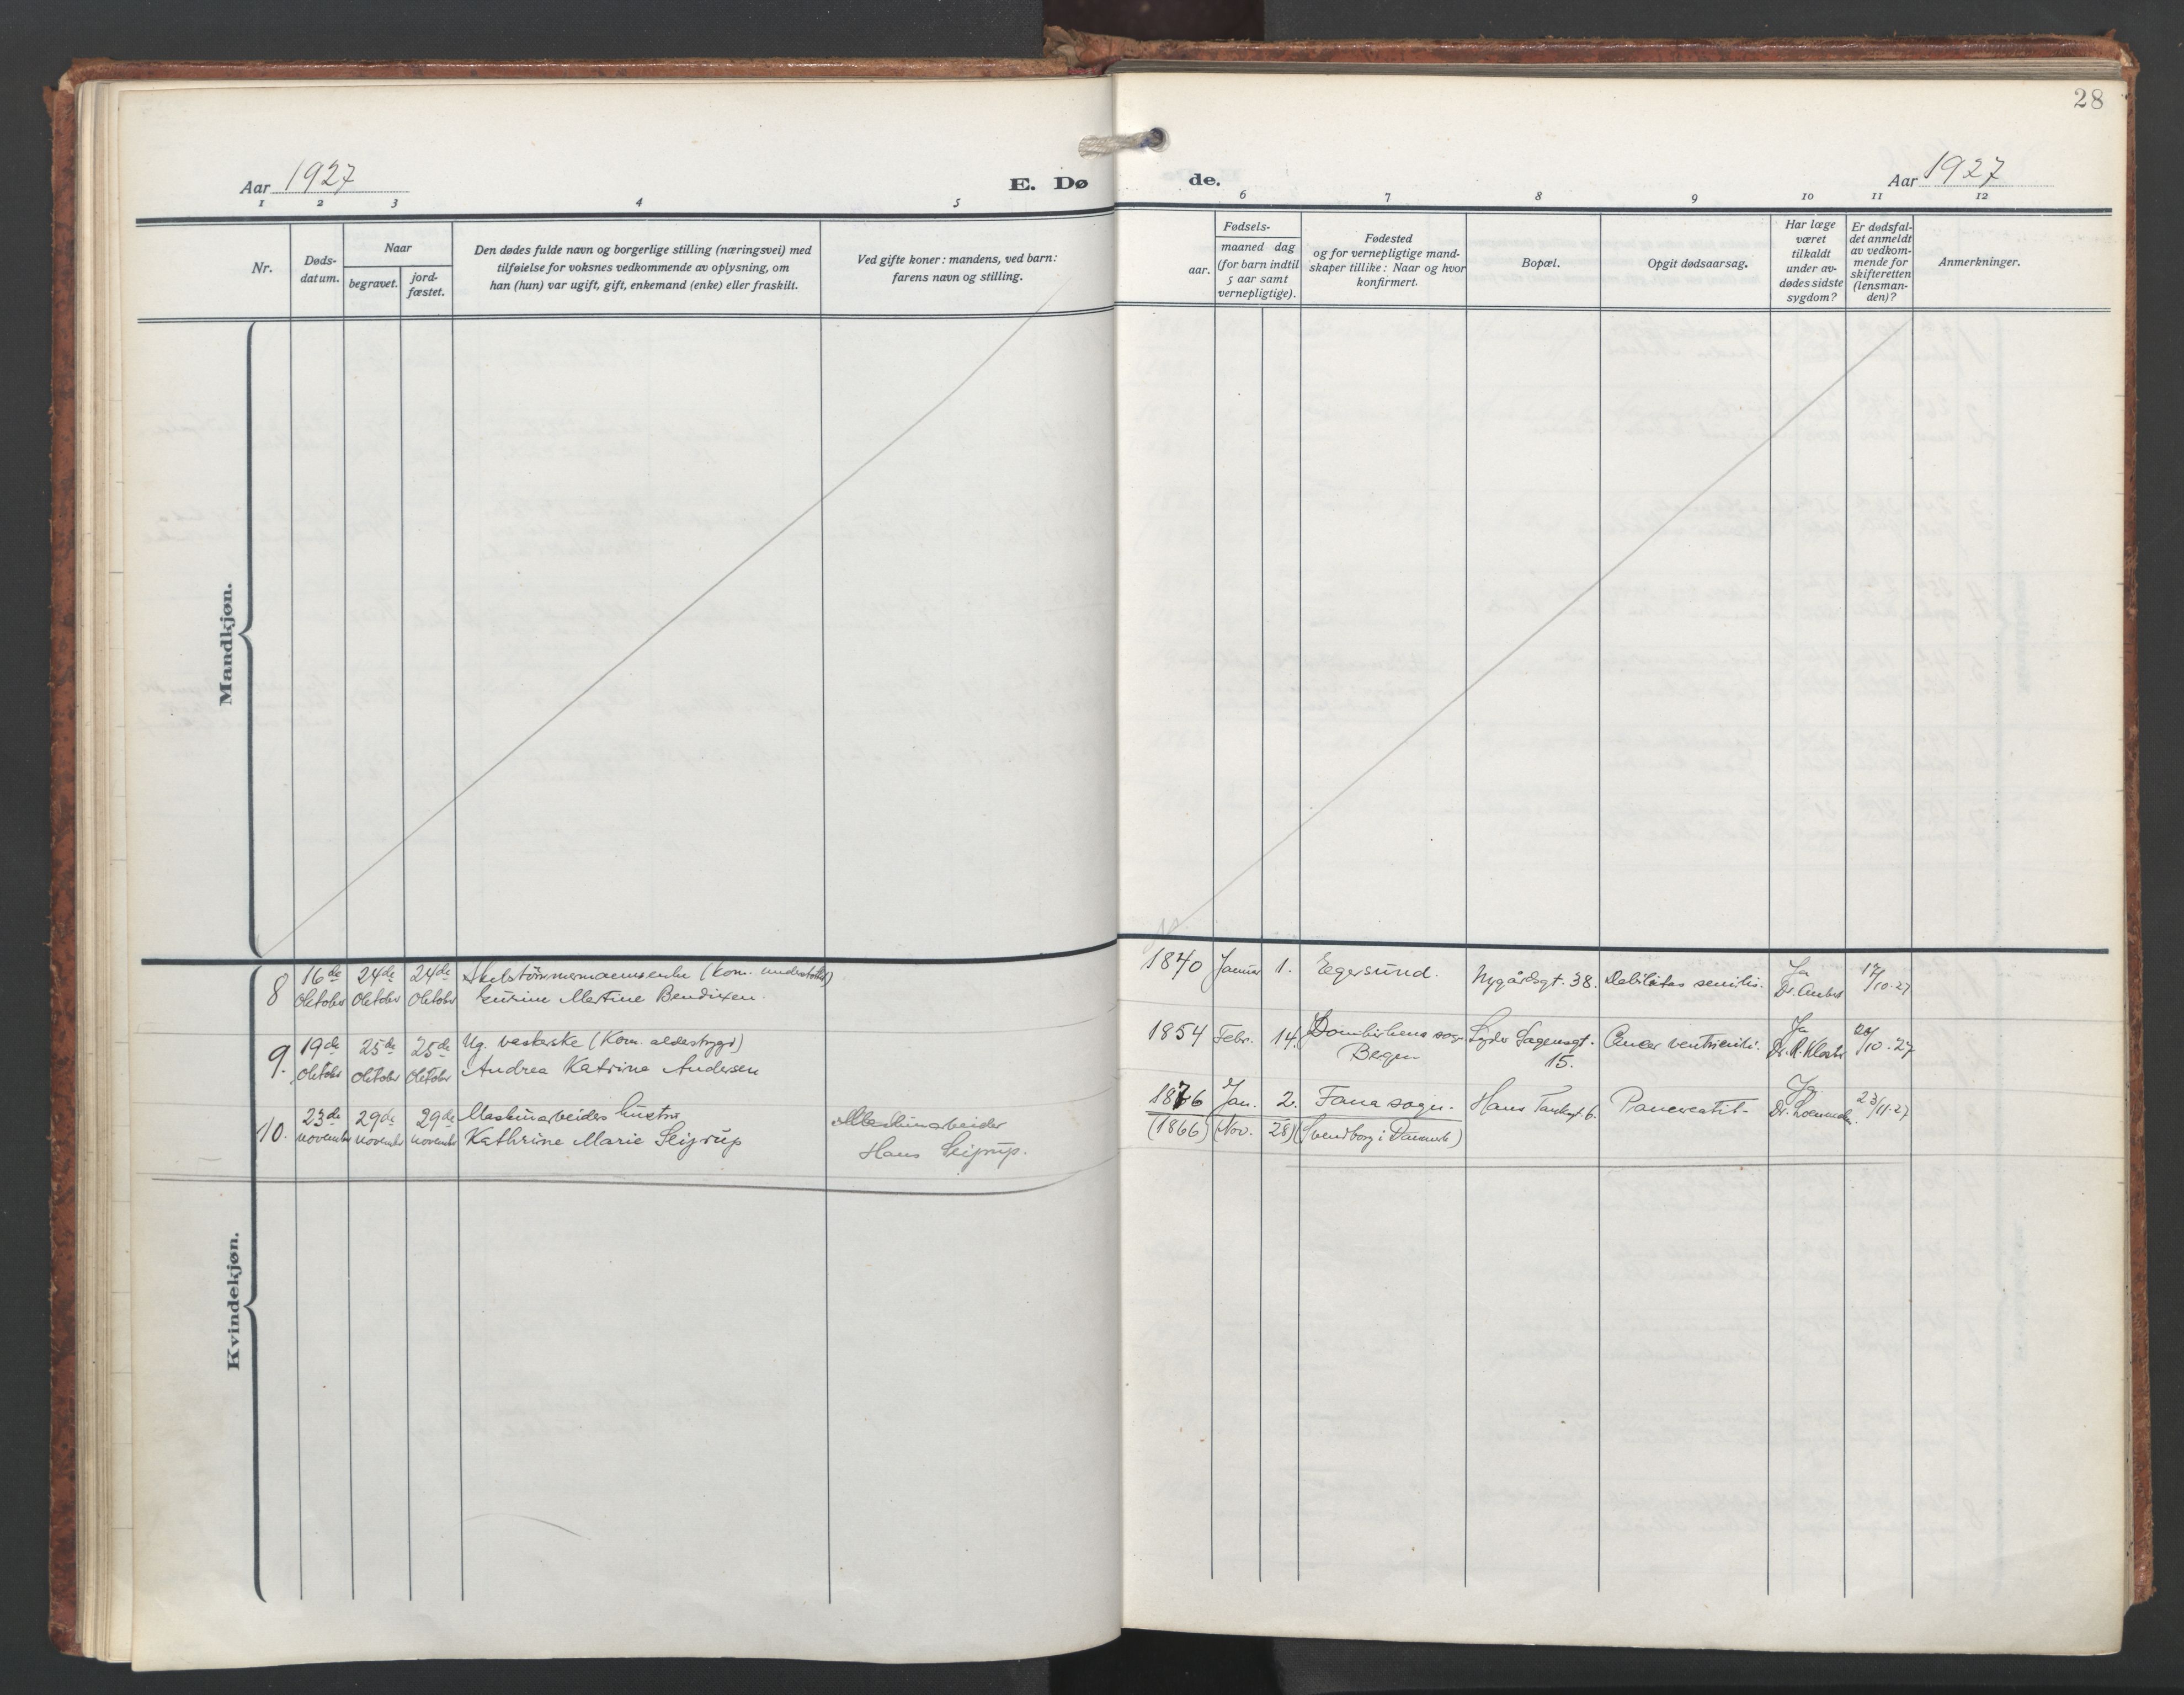 28
Aar 1927
E. Dø
de.
Aar 1927
1 2 3 4 5 6 7 8 9 10 11 12
Nr.
Døds-
datum.
Naar
begravet.
jord-
fæstet.
Den dødes fulde navn og borgerlige stilling (næringsvei) med
tilføielse for voksnes vedkommende av oplysning, om
han (hun) var ugift, gift, enkemand (enke) eller fraskilt.
Ved gifte koner: mandens, ved barn:
farens navn og stilling.
Fødsels-
aar.
maaned dag
(for barn indtil
5 aar samt
vernepligtige).
Fødested
og for vernepligtige mand-
skaper tillike: Naar og hvor
konfirmert.
Bopæl.
Opgit dødsaarsag.
Har læge
været
tilkaldt
under av-
dødes sidste
sygdom?
Er dødsfal-
det anmeldt
av vedkom-
mende for
skifteretten
(lensman-
den)?
Anmerkninger.
Mandkjøn.
Kvindekjøn.
8 16de 24de 24de (kom. understøttet)
Oktober Oktober Oktober Martine Bendixen.
1840 Januar 1. Egersund. Nygårdsgt. 38. Debilitas senilis. Ja 17/10-27
Dr.
9. 19de 25de 25de Ug. vaskerske (Kom. alderstrygd)
Oktober Oktober Oktober Andrea Katrine Andersen
1854 Febr. 14. Domkirkens sogn Lyder Sagensgt. Cancer ventriculi. Ja /10-27
Bergen 15. Dr.
10. 23de 29de 29de Maskinarbeiders hustru
november november november Kathrine Marie Seijrup
Maskinarbeider
Hans Seijrup.
1876 Jan. 2. Fana sogn. Hans Tanksgt. 6. Pancreatit- Ja 23/11-27
(1866) (Nov. 28) (Svendborg i Danmark) Dr.